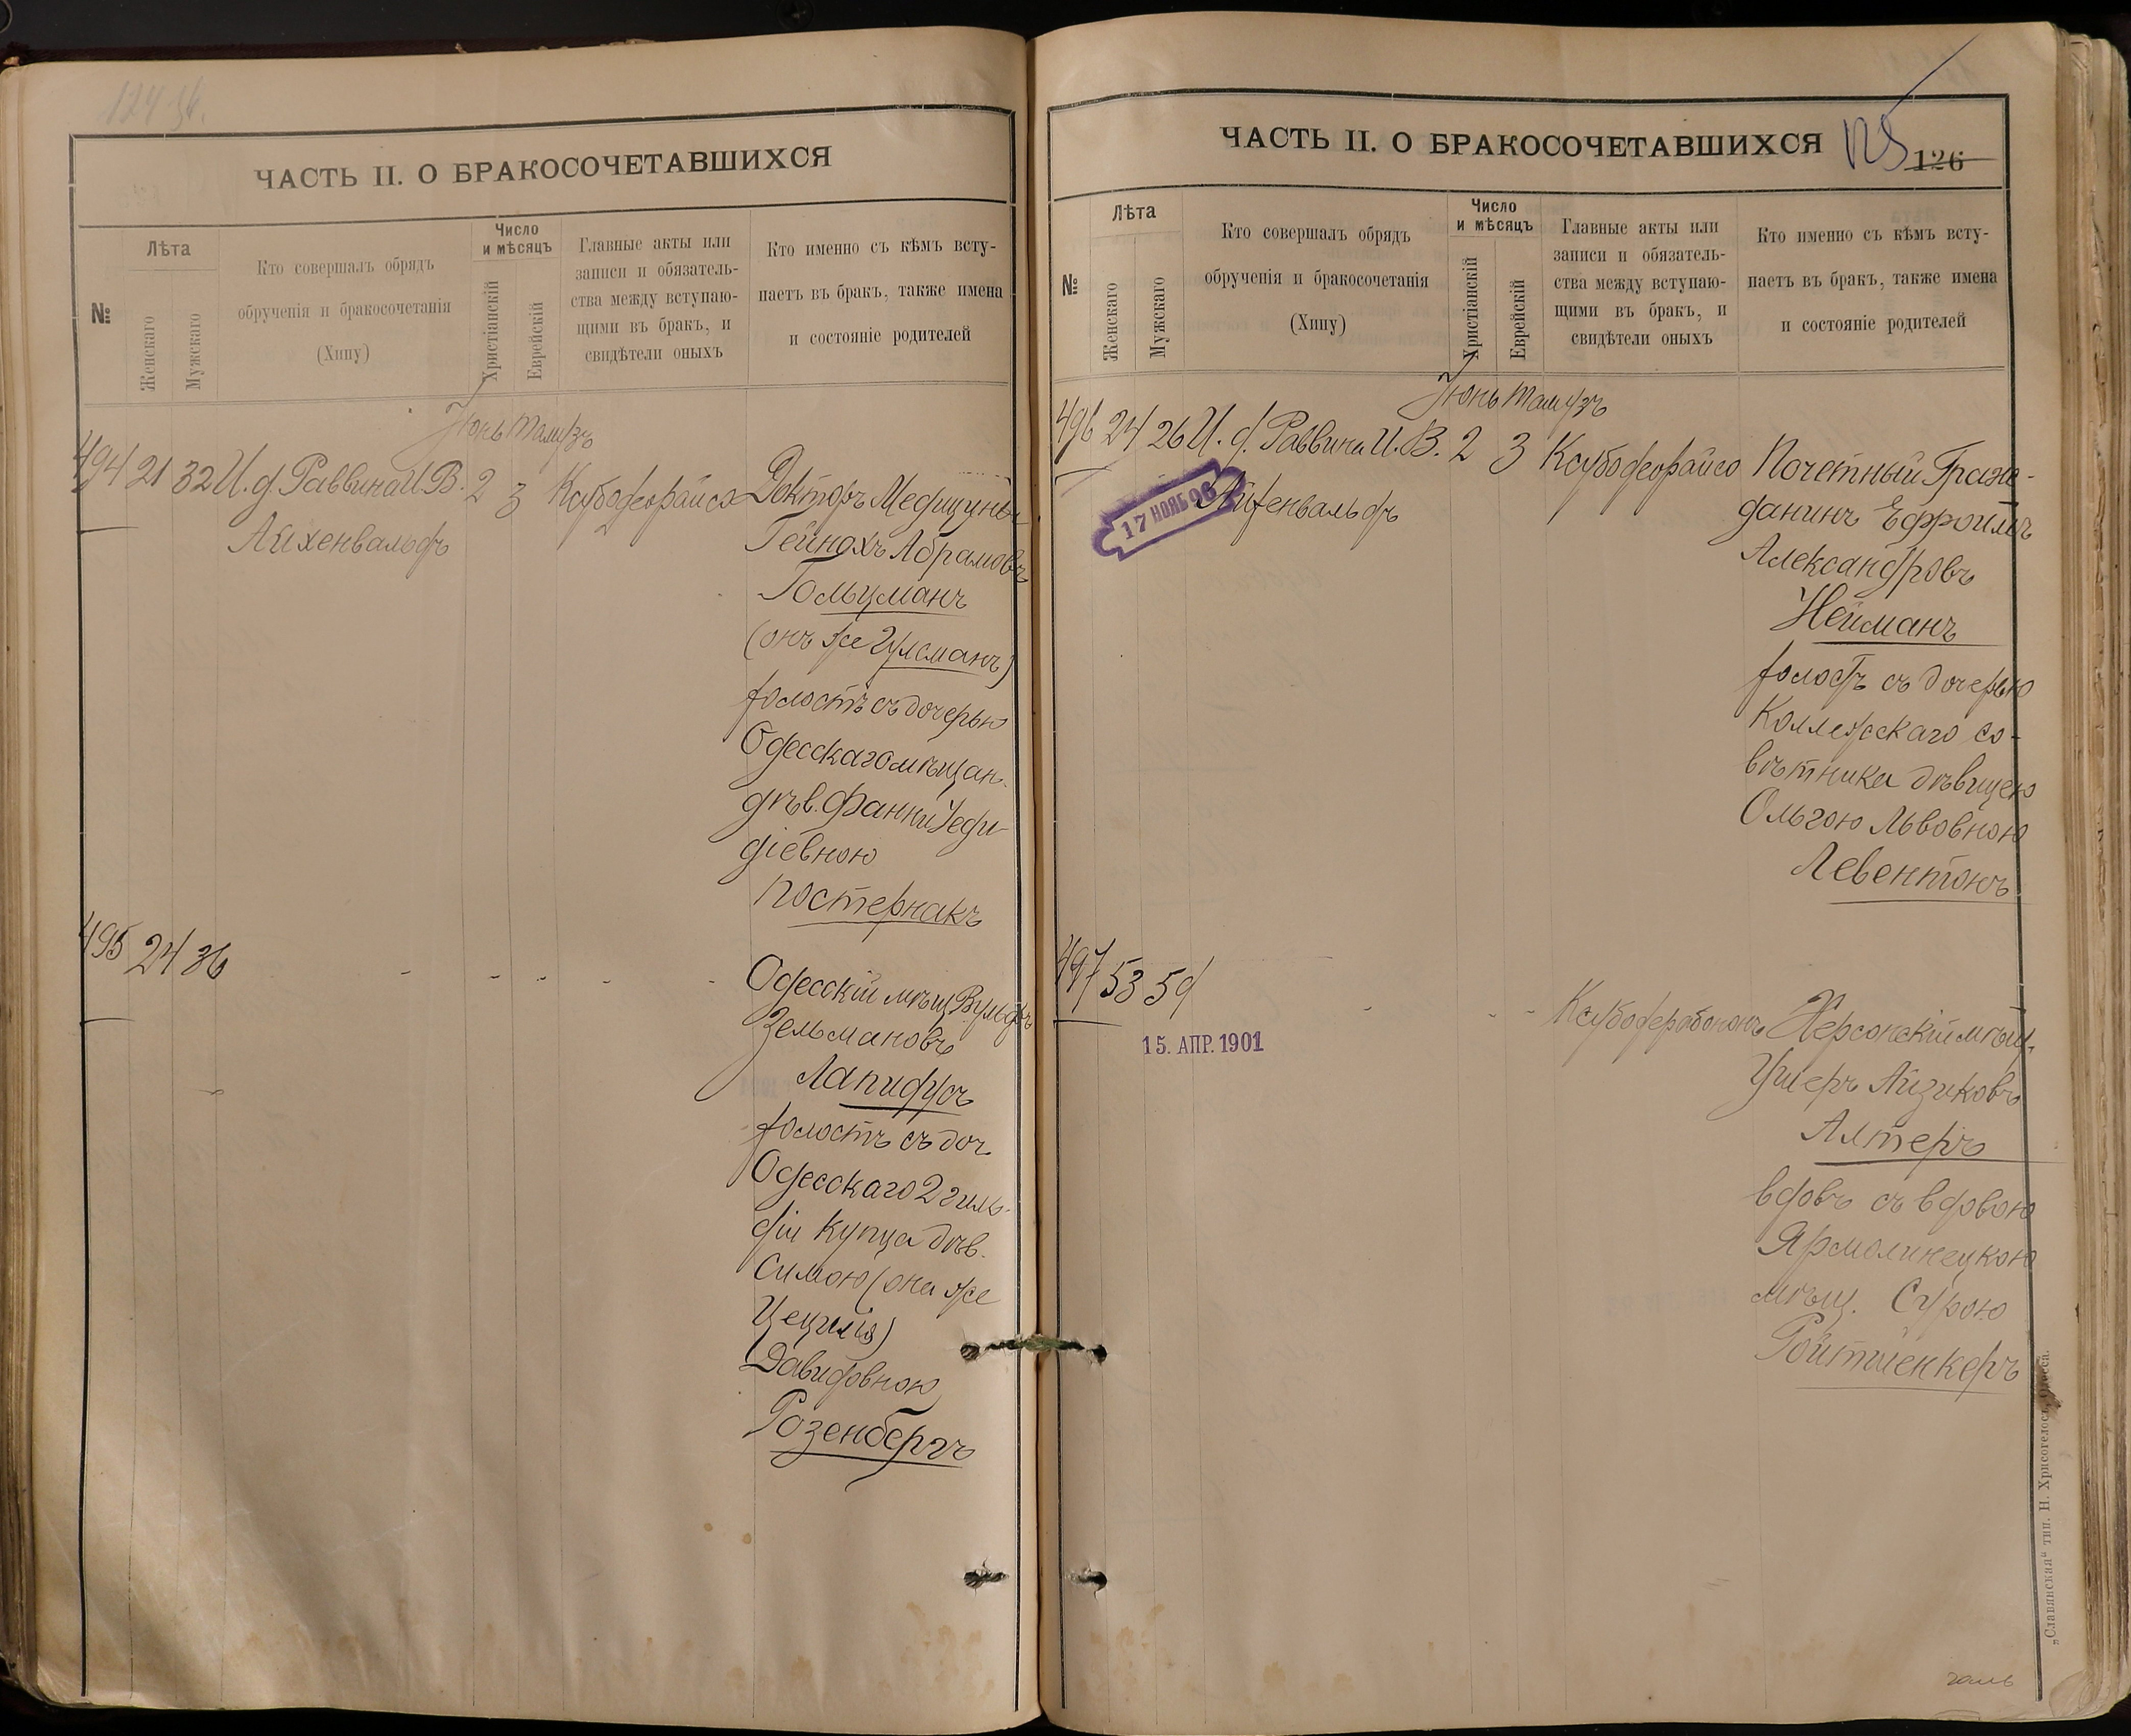 ЧАСТЬ II. О БРАКОСОЧЕТАВШИХСЯ
№
Лѣта
Женскаго
Мужскаго
Кто совершалъ обрядъ
обрученія и бракосочетанія
(Хипу)
Число
и мѣсяцъ
Христіанскій
Еврейскій
Главные акты или
записи и обязатель-
ства между вступаю-
щими въ бракъ, и
свидѣтели оныхъ
Кто именно съ кѣмъ всту-
паетъ въ бракъ, также имена
и состояніе родителей
Іюнь Тамузъ
494 21 32 И. д. Раввина И. В. 2 3
Айхенвальдъ
Докторъ Медицины
Гейнохъ Абрамовъ
Гольцманъ
(онъ же Гулсманъ)
холостъ съ дочерью
Одесскаго мѣщан.
дѣв. Фанни
діевною
Постернакъ
495 24 36 - - - - -
Одесскій мѣщ. Вульфъ
Зельмановъ
Лапидусъ
холостъ съ доч.
Одесскаго 2 гиль-
діи купца дѣв.
Симою (она же
Цецилія)
Давидовною
Розенбергъ
ЧАСТЬ II. О БРАКОСОЧЕТАВШИХСЯ
125 126
№
Лѣта
Женскаго
Мужскаго
Кто совершалъ обрядъ
обрученія и бракосочетанія
(Хипу)
Число
и мѣсяцъ
Христіанскій
Еврейскій
Главные акты или
записи и обязатель-
ства между вступаю-
щими въ бракъ, и
свидѣтели оныхъ
Кто именно съ кѣмъ всту-
паетъ въ бракъ, также имена
и состояніе родителей
Іюнь Тамузъ
496 24 26 И. д. Раввина И. В. 2 3
Айхенвальдъ
17 НОЯБ 96
Почетный Граж-
данинъ Ефроимъ
Александровъ
Нейманъ
холостъ съ дочерью
Коллежскаго со-
вѣтника дѣвицею
Ольгою Львовною
Левентонъ
497 53 59 - - -
15. АПР. 1901
Херсонскій мѣщ.
Ушеръ Айзиковъ
Алтеръ
вдовъ съ вдовою
Ярмолинецкою
мѣщ. Сурою
Ройтшенкеръ
„Славянская" тип. Н. Хрисогелосъ, Одесса.